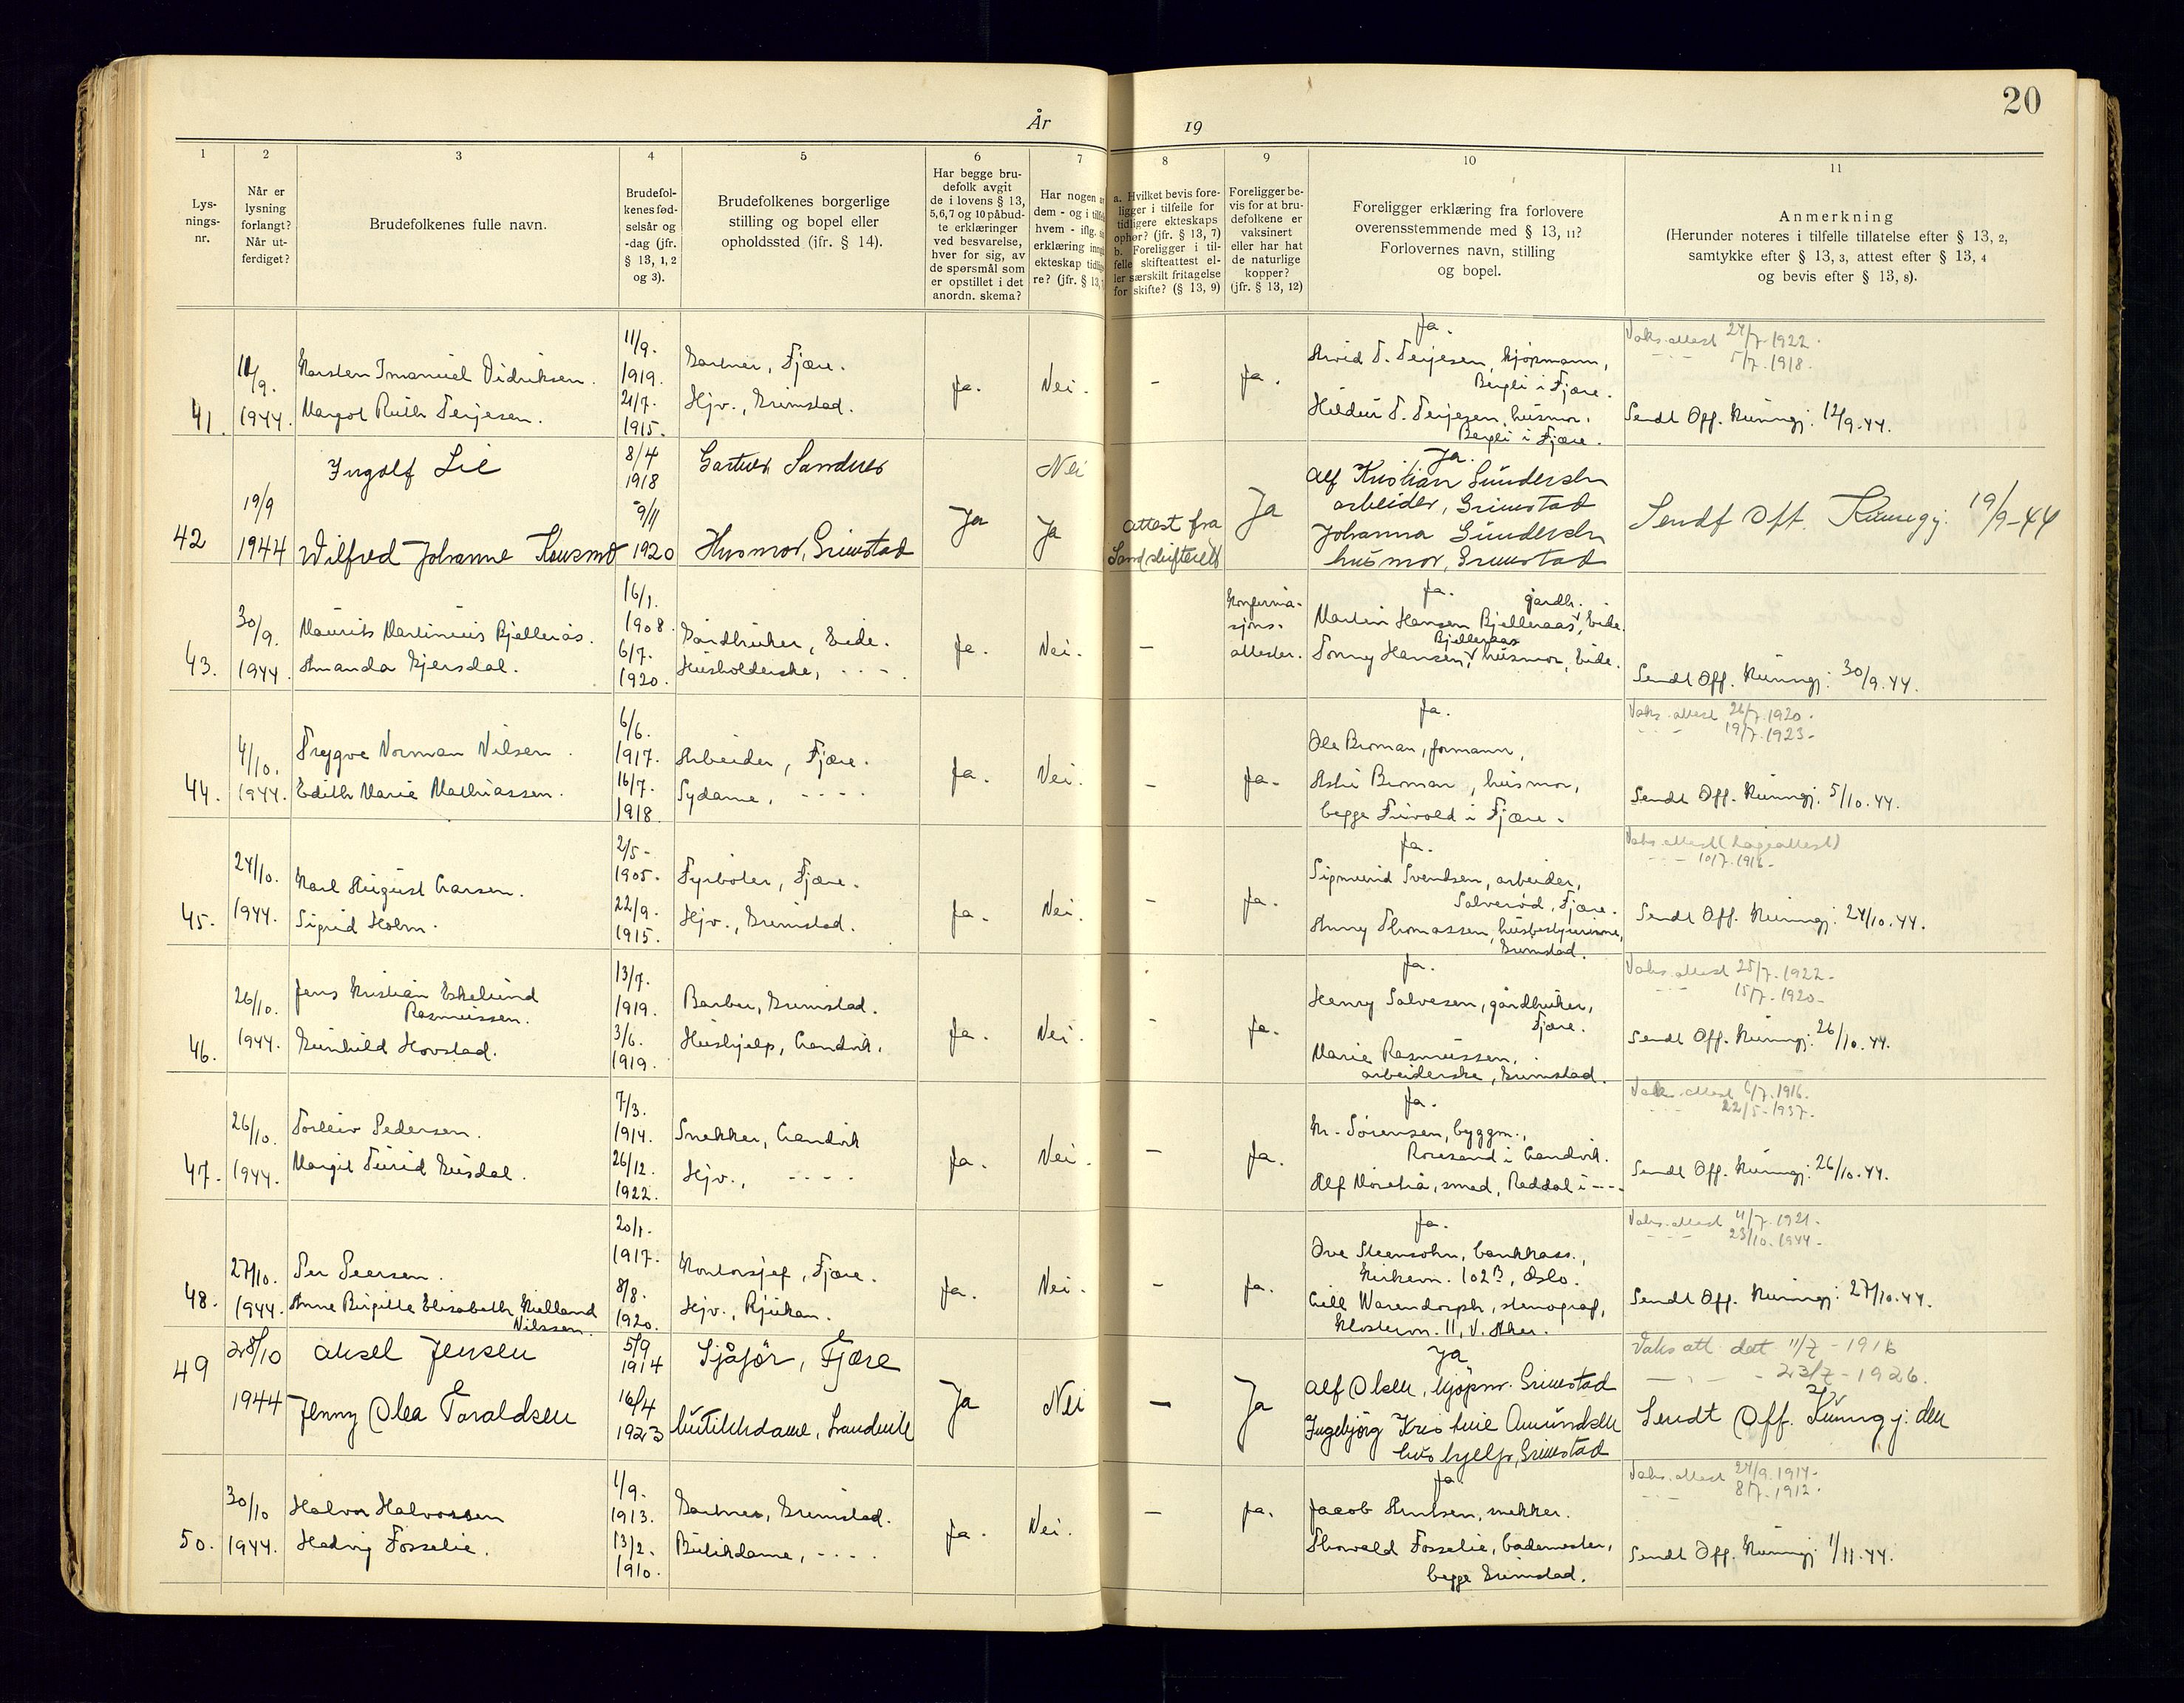 20
År 19
1 2 3 4 5 6 7 8 9 10 11
Lys-
nings-
nr.
Når er
lysning
forlangt?
Når ut-
ferdiget?
Brudefolkenes fulle navn.
Brudefol-
kenes fød-
selsår og
-dag (jfr.
§ 13, 1, 2
og 3).
Brudefolkenes borgerlige
stilling og bopel eller
opholdssted (jfr. § 14).
Har begge bru-
defolk avgit
de i lovens § 13,
5, 6, 7 og 10 påbud-
te erklæringer
ved besvarelse,
hver for sig, av
de spørsmål som
er opstillet i det
anordn. skema?
Har nogen a
dem - og i tilfe
hvem - iflg.
erklæring inng
ekteskap tidlig
re? (jfr. § 13,
a. Hvilket bevis fore-
ligger i tilfelle for
tidligere ekteskaps
ophør? (jfr. § 13, 7)
b. Foreligger i til-
felle skifteattest el-
ler særskilt fritagelse
for skifte? (§ 13, 9)
Foreligger be-
vis for at bru-
defolkene er
vaksinert
eller har hat
de naturlige
kopper?
(jfr. § 13, 12)
Foreligger erklæring fra forlovere
overensstemmende med § 13, 11?
Forlovernes navn, stilling
og bopel.
Anmerkning
(Herunder noteres i tilfelle tillatelse efter § 13, 2,
samtykke efter § 13, 3, attest efter § 13, 4
og bevis efter § 13, 8).
41.
11/9.
1944.
Karsten Imanuel Didriksen.
Margot Ruth Terjesen.
11/9.
1919.
21/7.
1915.
Gartner, Fjære.
Hjv., Grimstad.
Ja.
Nei.
-
Ja.
Ja.
Arvid T. Terjesen, kjøpmann,
Bergli i Fjære.
Hildur T. Terjesen, husmor.
Bergli i Fjære.
Vaks. attest 24/7.1922.
- - 5/7.1918.
Sendt Off. Kunngj. 12/9.44.
42
19/9
1944
Ingolf Lie
Wilfred Johanne
8/4
1918
9/11
1920
Gartner Sandnes
Husmor, Grimstad
Ja
Nei
Ja
attest fra
Sand skifterett
Ja
Ja.
Alf Kristian Gundersen
arbeider, Grimstad
Johanna Gundersen
husmor, Grimstad
Sendt Off. Kunngj. 19/9-44
43.
30/9.
1944.
Maurits Martinius Bjellerås.
Amanda Gjersdal.
16/1.
1908.
6/7.
1920.
Gårdbruker, Eide.
Husholderske, - - -.
Ja.
Nei.
-
Konfirma-
sjons-
attester.
Ja.
gårdb.
Martin Hansen Bjelleraas, Eide.
Bjelleraas
Tonny Hansen, husmor, Eide.
Sendt Off. Kunngj. 30/9.44.
44.
4/10.
1944.
Trygve Norman Nilsen.
Edith Marie Mathiassen.
6/6.
1917.
16/7.
1918.
Arbeider, Fjære.
Sydame, - - - -
Ja.
Nei.
-
Ja.
Ja.
Ole Broman, formann,
Broman, husmor,
begge Frivold i Fjære.
Vaks. attest 26/7.1920.
- - 19/7.1923.
Sendt Off. Kunngj. 5/10.44.
45.
24/10.
1944.
Karl August Larsen.
Sigrid Holm.
2/5-
1905.
22/9.
1915.
Fyrbøter, Fjære.
Hjv., Grimstad.
Ja.
Nei.
-
Ja.
Ja.
Sigmund Svendsen, arbeider,
Salverød, Fjære.
Anny Thomassen, husbestyrerinne,
Grimstad.
Vaks. attest (Lægeattest)
- - 10/7.1916.
Sendt Off. Kunngj. 24/10.44.
46.
26/10.
1944.
Jens Kristian Eskelund
Rasmussen.
Gunhild Hovstad.
13/7.
1919.
3/6.
1919.
Barber, Grimstad.
Hushjelp, Landvik.
Ja.
Nei.
-
Ja.
Ja.
Henry Salvesen, gårdbruker,
Fjære.
Marie Rasmussen,
arbeiderske, Grimstad.
Vaks. attest 25/7.1922.
- - 15/7.1920.
Sendt Off. Kunngj. 26/10.44.
47.
26/10.
1944.
Torleiv Pedersen.
Margit Turid Gusdal.
7/3.
1914.
26/12.
1922.
Snekker, Landvik
Hjv., - - - -
Ja.
Nei.
-
Ja.
Ja.
Kr. Sørensen, byggm.,
Roresand i Landvik.
Alf, smed, Reddal i - - -
Vaks. attest 6/7.1916.
- - 22/5.1937.
Sendt Off. Kunngj. 26/10.44.
48.
27/10.
1944.
Per Peersen.
Anne Birgitte Elisabeth Kielland
Nilssen.
20/1.
1917.
8/8.
1920.
Kontorsjef, Fjære.
Hjv., Rjukan.
Ja.
Nei.
-
Ja.
Ja.
Ove Steensohn, bankkass.,
Kirkevn. 102B, Oslo.
Warendorph, stenograf,
Klostervn. 11, V. Aker.
Vaks. attest 11/7.1921.
- - 23/10.1944.
Sendt Off. Kunngj. 27/10.44.
49
28/10
1944
Aksel Jensen
Jenny Olea Taraldsen
5/9
1914
16/4
1923
Sjåfør, Fjære
Butikkdame, Landvik
Ja
Nei
-
Ja
Ja
Alf Olsen, kjøpm. Grimstad
Ingebjørg Kristine Amundsen
hushjelp, Grimstad
Vaks att dat 11/7 - 1916
- - - 23/7 - 1926.
Sendt Off. Kunngj. den
50.
30/10
1944.
Halvor Halvorsen
Hedvig Fosselie.
1/9.
1913.
13/2.
1910.
Gartner, Grimstad.
Butikdame, - - - .
Ja.
Nei.
-
Ja.
Ja
Jacob Knutsen, snekker.
Thorvald Fosselie, bademester,
begge Grimstad.
Vaks. attest 24/9.1914.
- - 8/7.1912.
Sendt Off. Kunngj. 1/11.44.